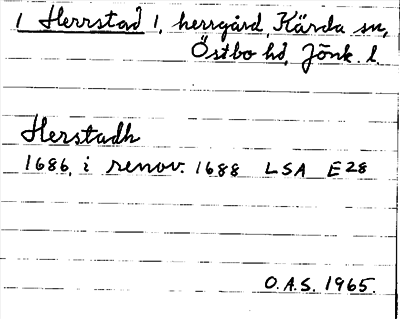 1 Herrstad 1, herrgård, Kärda sn,
Östbo hd, Jönk. l.
Herstadh
1686, i renov. 1688 LSA E28
O.A.S. 1965.